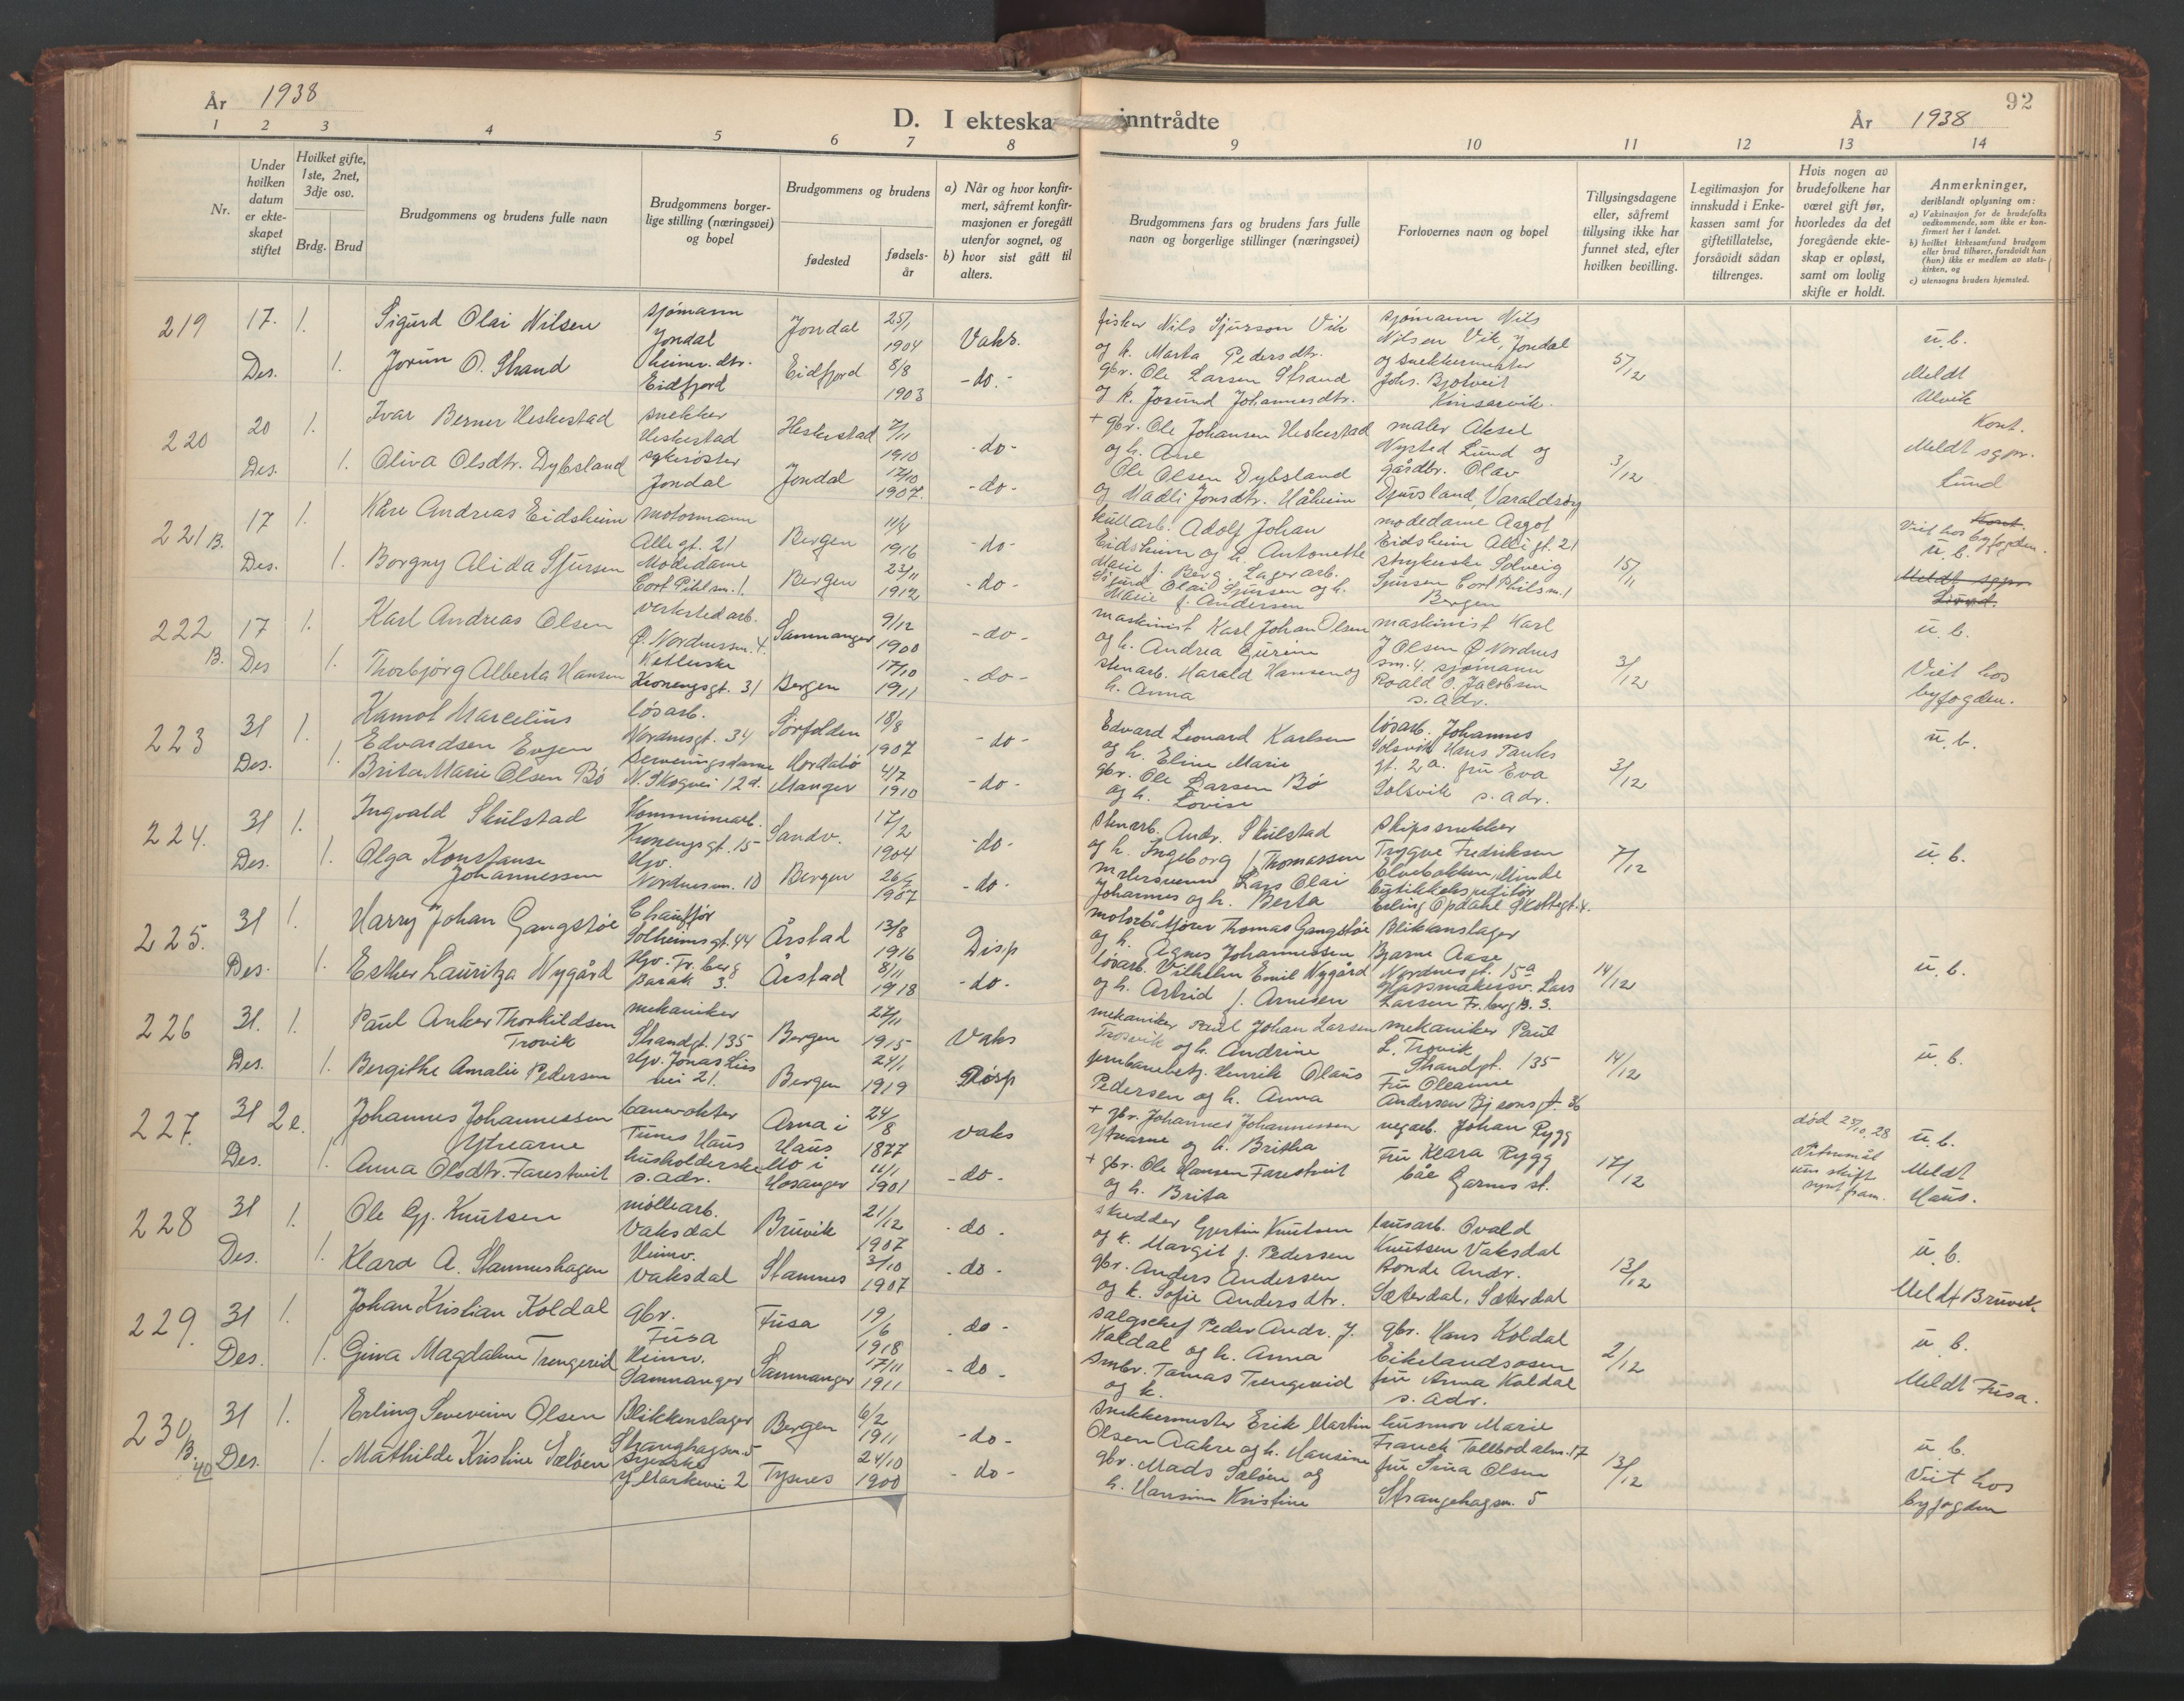 År 1938
D. I ekteska inntrådte
92
År 1938
1 2 3 4 5 6 7 8 9 10 11 12 13 14
Nr.
Under hvilken datum er ekteskapet stiftet
Hvilket gifte, 1ste, 2net, 3dje osv.
Brdg. Brud
Brudgommens og brudens fulle navn
Brudgommens borgerlige stilling (næringsvei) og bopel
Brudgommens og brudens
fødested
fødselsår
a) Når og hvor konfirmert, såfremt konfirmasjonen er foregått utenfor sognet, og
b) hvor sist gått til alters.
Brudgommens fars og brudens fars fulle navn og borgerlige stillinger (næringsvei)
Forlovernes navn og bopel
Tillysingsdagene eller, såfremt tillysing ikke har funnet sted, efter hvilken bevilling.
Legitimasjon for innskudd i Enkekassen samt for giftetillatelse, forsåvidt sådan tiltrenges.
Hvis nogen av brudefolkene har været gift før, hvorledes da det foregående ekteskap er opløst, samt om lovlig skifte er holdt.
Anmerkninger, deriblandt oplysning om:
a) Vaksinasjon for de brudefolks vedkommende, som ikke er konfirmert her i landet.
b) hvilket kirkesamfund brudgom eller brud tilhører, forsåvidt han (hun) ikke er medlem av statskirken, og
c) utensogns bruders hjemsted.
219 17. Des. 1. Sigurd Olai Nilsen sjømann Jondal Jondal 25/1 1904 Vaks.
1. Jorun O. Strand heimv. dtr. Eidfjord Eidfjord 8/8 1903 -do.-
fisker Nils Sjurson Vik og k. Marta Pedersdtr.
gbr. Ole Larsen Strand og k. Jorund Johannesdtr.
sjømann Nils Nilsen Vik, Jondal og snekkermester Johs. Bjotveit Kinsarvik.
5/12
u. b.
Meldt Ulvik
220 20 Des. 1. Ivar Berner Heskestad snekker Heskestad Heskestad 7/11 1910 -do-
1. Oliva Olsdtr. Dybsland sykesøster Jondal Jondal 12/10 1907. -do-
+ gbr. Ole Johansen Heskestad og h. Ane
Ole Olsen Dybsland og Madli Jonsdtr. Håheim
maler Aksel Nysted Lund og gårdbr. Olav Djuvsland, Varaldsøy
3/12
Kont.
Meldt sgpr. Lund
221 B. 17 Des. 1. Kåre Andreas Eidsheim motormann Alle gt. 21 Bergen 11/4 1916 -do-
1. Borgny Alida Sjursen Modedame Cort Pihl sm. 1. Bergen 23/11 1912 -do-
kullarb. Adolf Johan Eidsheim og h. Antonette Marie f. Berg. Lagerarb. Sigurd Olai Sjursen og h. Marie f. Andersen
modedame Aagot Eidsheim Allé gt. 21 strykerske Solveig Sjursen Cort Phils m. 1 Bergen
15/11
Kont.
Viet hos byfogden.
u. b.
Meldt sgpr. Lund.
222 B. 17 Des 1. Karl Andreas Olsen verkstedarb. Ø. Nordnessm. 4. Samnanger 9/12 1900 -do-
1. Thorbjörg Alberta Hansen Kelnerske Kronengsgt. 31 Bergen 17/10 1911 -do-
maskinist Karl Johan Olsen og h. Andrea Gurine
stenarb. Harald Hansen og h. Anna
maskinist Karl J Olsen Ø Nordnes sm. 4. sjømann Roald O. Jacobsen s. adr.
3/12
u. b.
Viet hos byfogden.
223 31 Des. 1. Kamol Marcelius Edvardsen Evjen løsarb. Nordnesgt. 34 Sørfolden 18/8 1907 -do-
1. Brita Marie Olsen Bø Serveringsdame N. Skogvei 12 d. Hordabø Manger 4/7 1910 -do-
Edvard Leonard Karlsen og h. Eline Marie
gbr. Ole Larsen Bø og h. Lovise
løsarb. Johannes Solsvik Hans Tanks gt. 2a. fru Eva Solsvik s. adr.
3/12
u. b.
224. 31 Des. 1. Ingvald Skulstad Kommunearb. Kronengsgt. 15 Sandv. 17/2 1904 -do-
1. Olga Konstanse Johannessen Hjv. Nordnessm. 10 Bergen 26/5 1907 -do-
stenarb. Andr. Skulstad og h. Ingeborg f. Thomassen
malersvenn Lars Olai Johannes og h. Berta
skipssnekker Trygve Fredriksen Elvebakken, Minde Butikkekspeditør Erling Opdahl Skottegt. 4.
7/12
u. b.
225. 31 Des. 1. Harry Johan Gangstøe Chauffør Solheimsgt. 44 Årstad 13/8 1916 Disp
1. Esther Lauritza Nygård Hjv. Fr. berg barak 3. Årstad 8/11 1918 -do-
motorbåtfører Thomas Gangstøe og h. Agnes Johannessen
løsarb. Vilhelm Emil Nygård og h. Astrid f. Arnesen
Blikkenslager Bjarne Aase Nordnesgt. 15a Lars Larsen Fr. berg B. 3.
14/12
u. b.
226 31. Des. 1. Paul Anker Thorkildsen Trovik mekaniker Strandgt. 135 Bergen 22/11 1915 Vaks
1. Bergithe Amalie Pedersen Hjv. Jonas Lies vei 21. Bergen 24/1 1919 Disp
mekaniker Paul Johan Larsen Trosvik og h. Andrine
jernbanebetj. Henrik Olaus Pedersen og h. Anna
mekaniker Paul L. Trovik Strandgt. 135 Fru Oleanne Andersen Bj sonsgt. 36
14/12
u. b.
227. 31 Des. 2e. Johannes Johannessen Ytrearne banevokter Tunes Haus Arna i Haus 24/8 1877 vaks
1. Anna Olsdtr. Farestveit husholderske s. adr. Mo i Hosanger 11/1 1901 -do-
+ gbr. Johannes Johannessen Ytrearne og h. Britha
+ gbr. Ole Hansen Farestveit og h. Brita
vegarb. Johan Rygg Fru Klara Rygg båe Garnes st.
17/12
død 25/10. 28 Vitnemål um skift synt fram.
u. b.
Meldt Haus.
228 31 Des. 1. Ole Gj. Knutsen møllearb. Vaksdal Bruvik 21/12 1907 -do-
1. Klara A. Stamneshagen Heimv. Vaksdal Stamnes 3/10 1907 -do-
skredder Gjertin Knutsen og k. Margit f. Pedersen
gbr. Anders Andersen og k. Sofie Andersdtr.
brusarb. Ovald Knutsen Vaksdal Bonde Andr. Sæterdal, Sæterdal
13/12
u. b.
Meldt Bruvik
229. 31 Des. 1. Johan Kristian Koldal gbr. Fusa Fusa 19/6 1918 -do-
1. Gina Magdalene Trengereid Heimv. Samnanger Samnanger 17/11 1911 -do-
salgschef Peder Andr. J. Koldal og h. Anna
smbr. Tomas Trengereid og k.
gbr. Hans Koldal Eikelandsosen fru Anna Koldal s. adr.
2/12
u. b.
Meldt Fusa.
230 B. 40 31 Des. 1. Erling Severin Olsen Blikkenslager Stranghagen 5 Bergen 6/2 1911 -do-
1. Mathilde Kristine Sæløen Syerske Y Markevei 2 Tysnes 24/10 1900 -do-
snekkermester Erik Martin Olsen Aakre og h. Hansine
gbr. Mads Sæløen og h. Hansine Kristine
husmor Marie Franck Tollbod alm. 17 fru Lina Olsen Strangehagen 5
13/12
u. b.
Viet hos byfogden